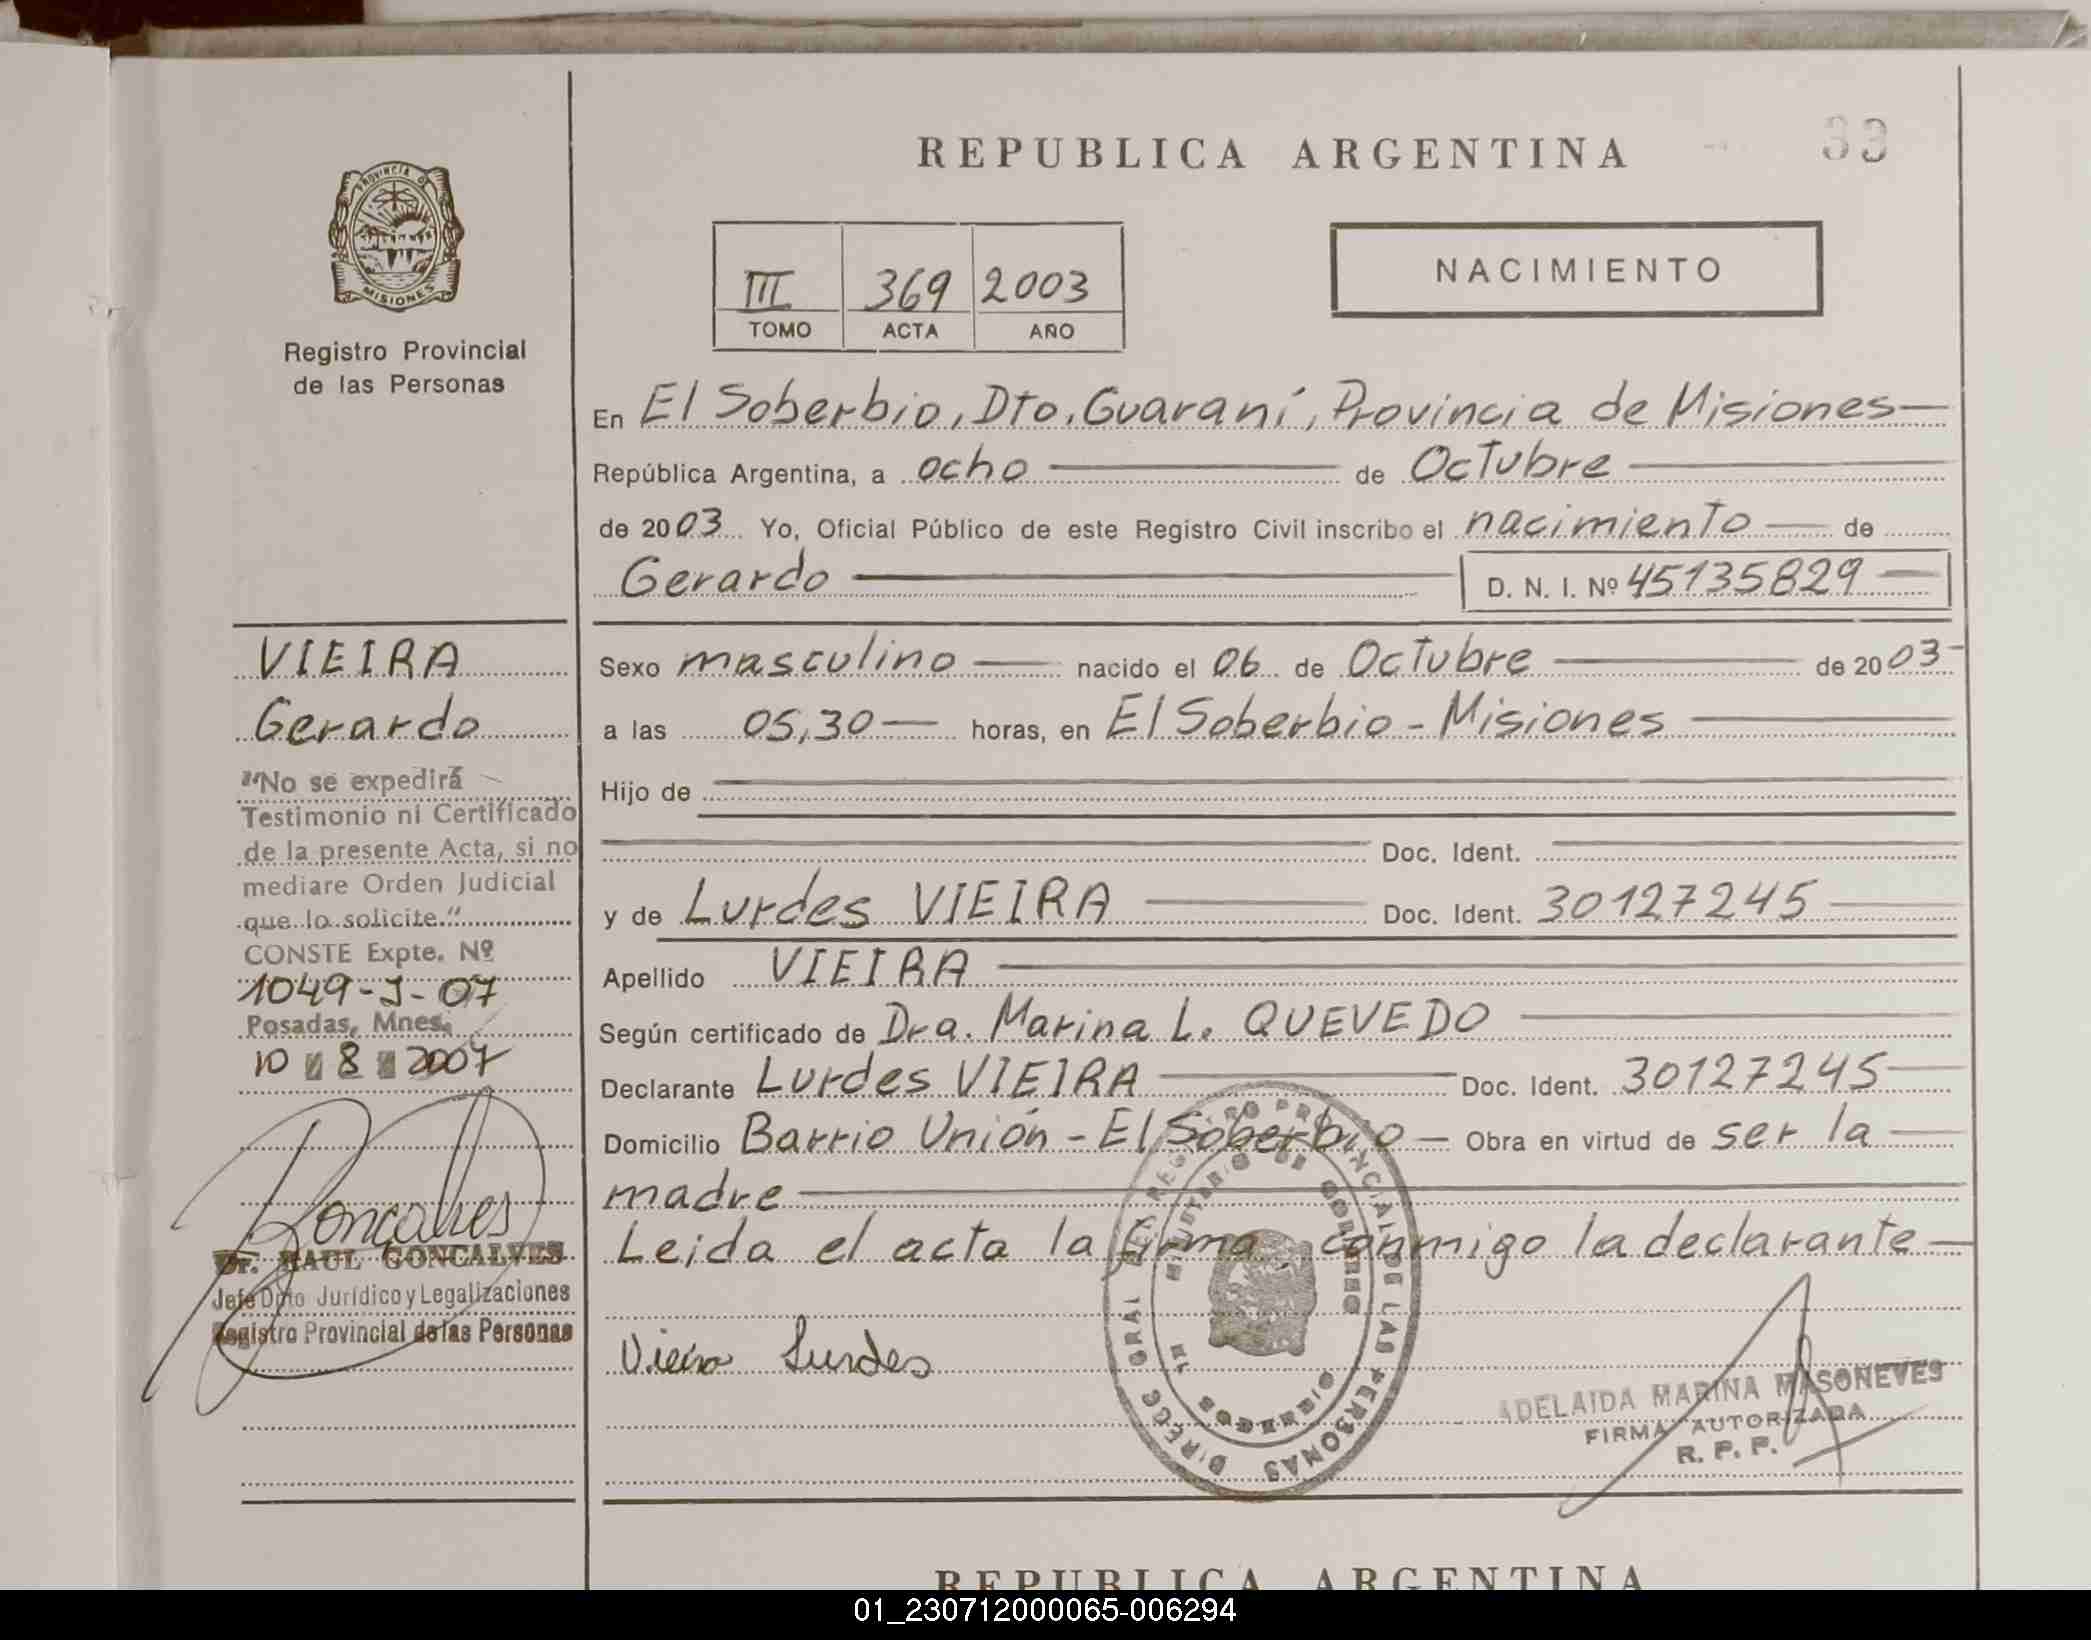 REPUBLICA ARGENTINA
33
PROVINCIA D
MISIONES
Registro Provincial
de las Personas
III 369 2003
TOMO ACTA AÑO
NACIMIENTO
En El Soberbio, Dto. Guaraní, Provincia de Misiones
República Argentina, a ocho de Octubre
de 2003 Yo, Oficial Público de este Registro Civil inscribo el nacimiento de
Gerardo D. N. I. Nº 45135829
Sexo masculino nacido el 06 de Octubre de 2003
a las 05,30 horas, en El Soberbio - Misiones
Hijo de
Doc. Ident.
y de Lurdes VIEIRA Doc. Ident. 30127245
Apellido VIEIRA
Según certificado de Dra. Marina L. QUEVEDO
Declarante Lurdes VIEIRA Doc. Ident. 30127245
Domicilio Barrio Unión - El Soberbio Obra en virtud de ser la
madre
Leida el acta la firma conmigo la declarante
Vieira Lurdes
ADELAIDA MARINA MASONEVES
FIRMA AUTORIZADA
R. P. P.
DIRECC GRAL DEL REGISTRO PROVINCIAL DE LAS PERSONAS
MINISTERIO DE GOBIERNO
MISIONES
VIEIRA
Gerardo
"No se expedirá
Testimonio ni Certificado
de la presente Acta, si no
mediare Orden Judicial
que lo solicite."
CONSTE Expte. Nº
1049-J-07
Posadas, Mnes.
10 8 2007
Goncalves
Dr. RAUL GONCALVES
Jefe Dpto Jurídico y Legalizaciones
Registro Provincial de las Personas
REPUBLICA ARGENTINA
01_230712000065-006294